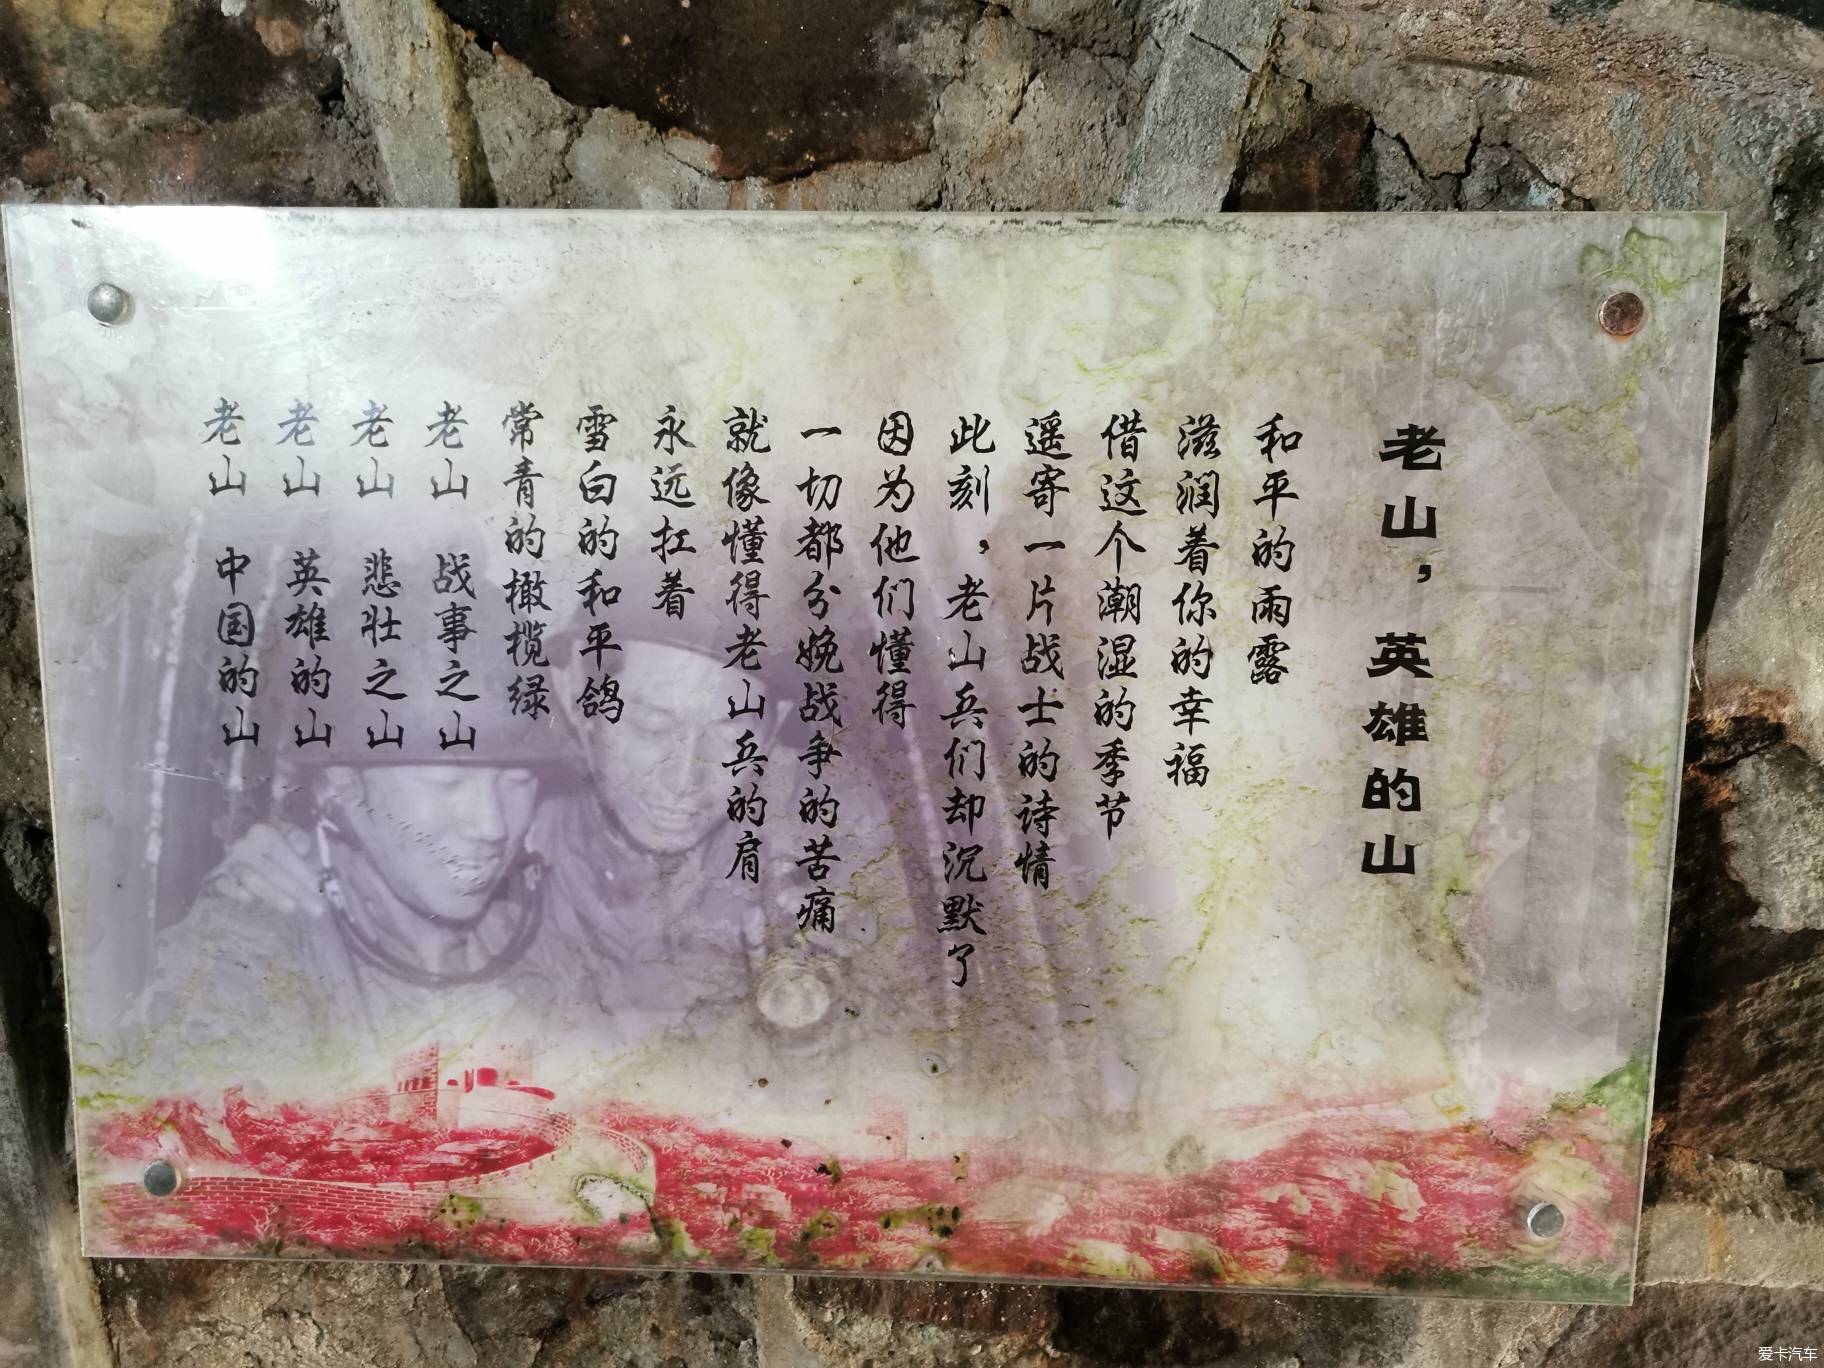 老山，英雄的山
和平的雨露
滋润着你的幸福
借这个潮湿的季节
遥寄一片战士的诗情
此刻，老山兵们却沉默了
因为他们懂得
一切都分娩战争的苦痛
就像懂得老山兵的肩
永远扛着
雪白的和平鸽
常青的橄榄绿
老山 战事之山
老山 悲壮之山
老山 英雄的山
老山 中国的山
爱卡汽车